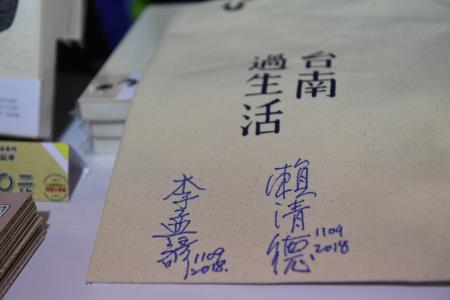 台南
過生活
賴清德
1109
2018
李孟諺
1109
2018.